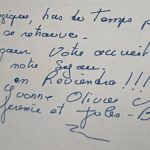 pas de temps p
se retrouver.
votre accueil
notre séjour.
en Reviendra !!!!
Yvonne Olivier
Jérémie et Jules - B